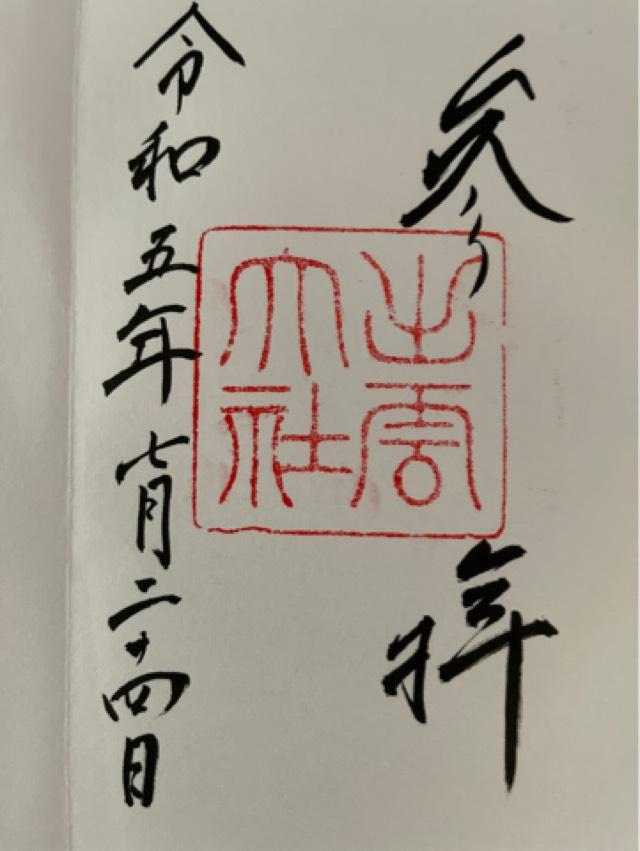 参拝
出雲
大社
令和五年七月二十四日